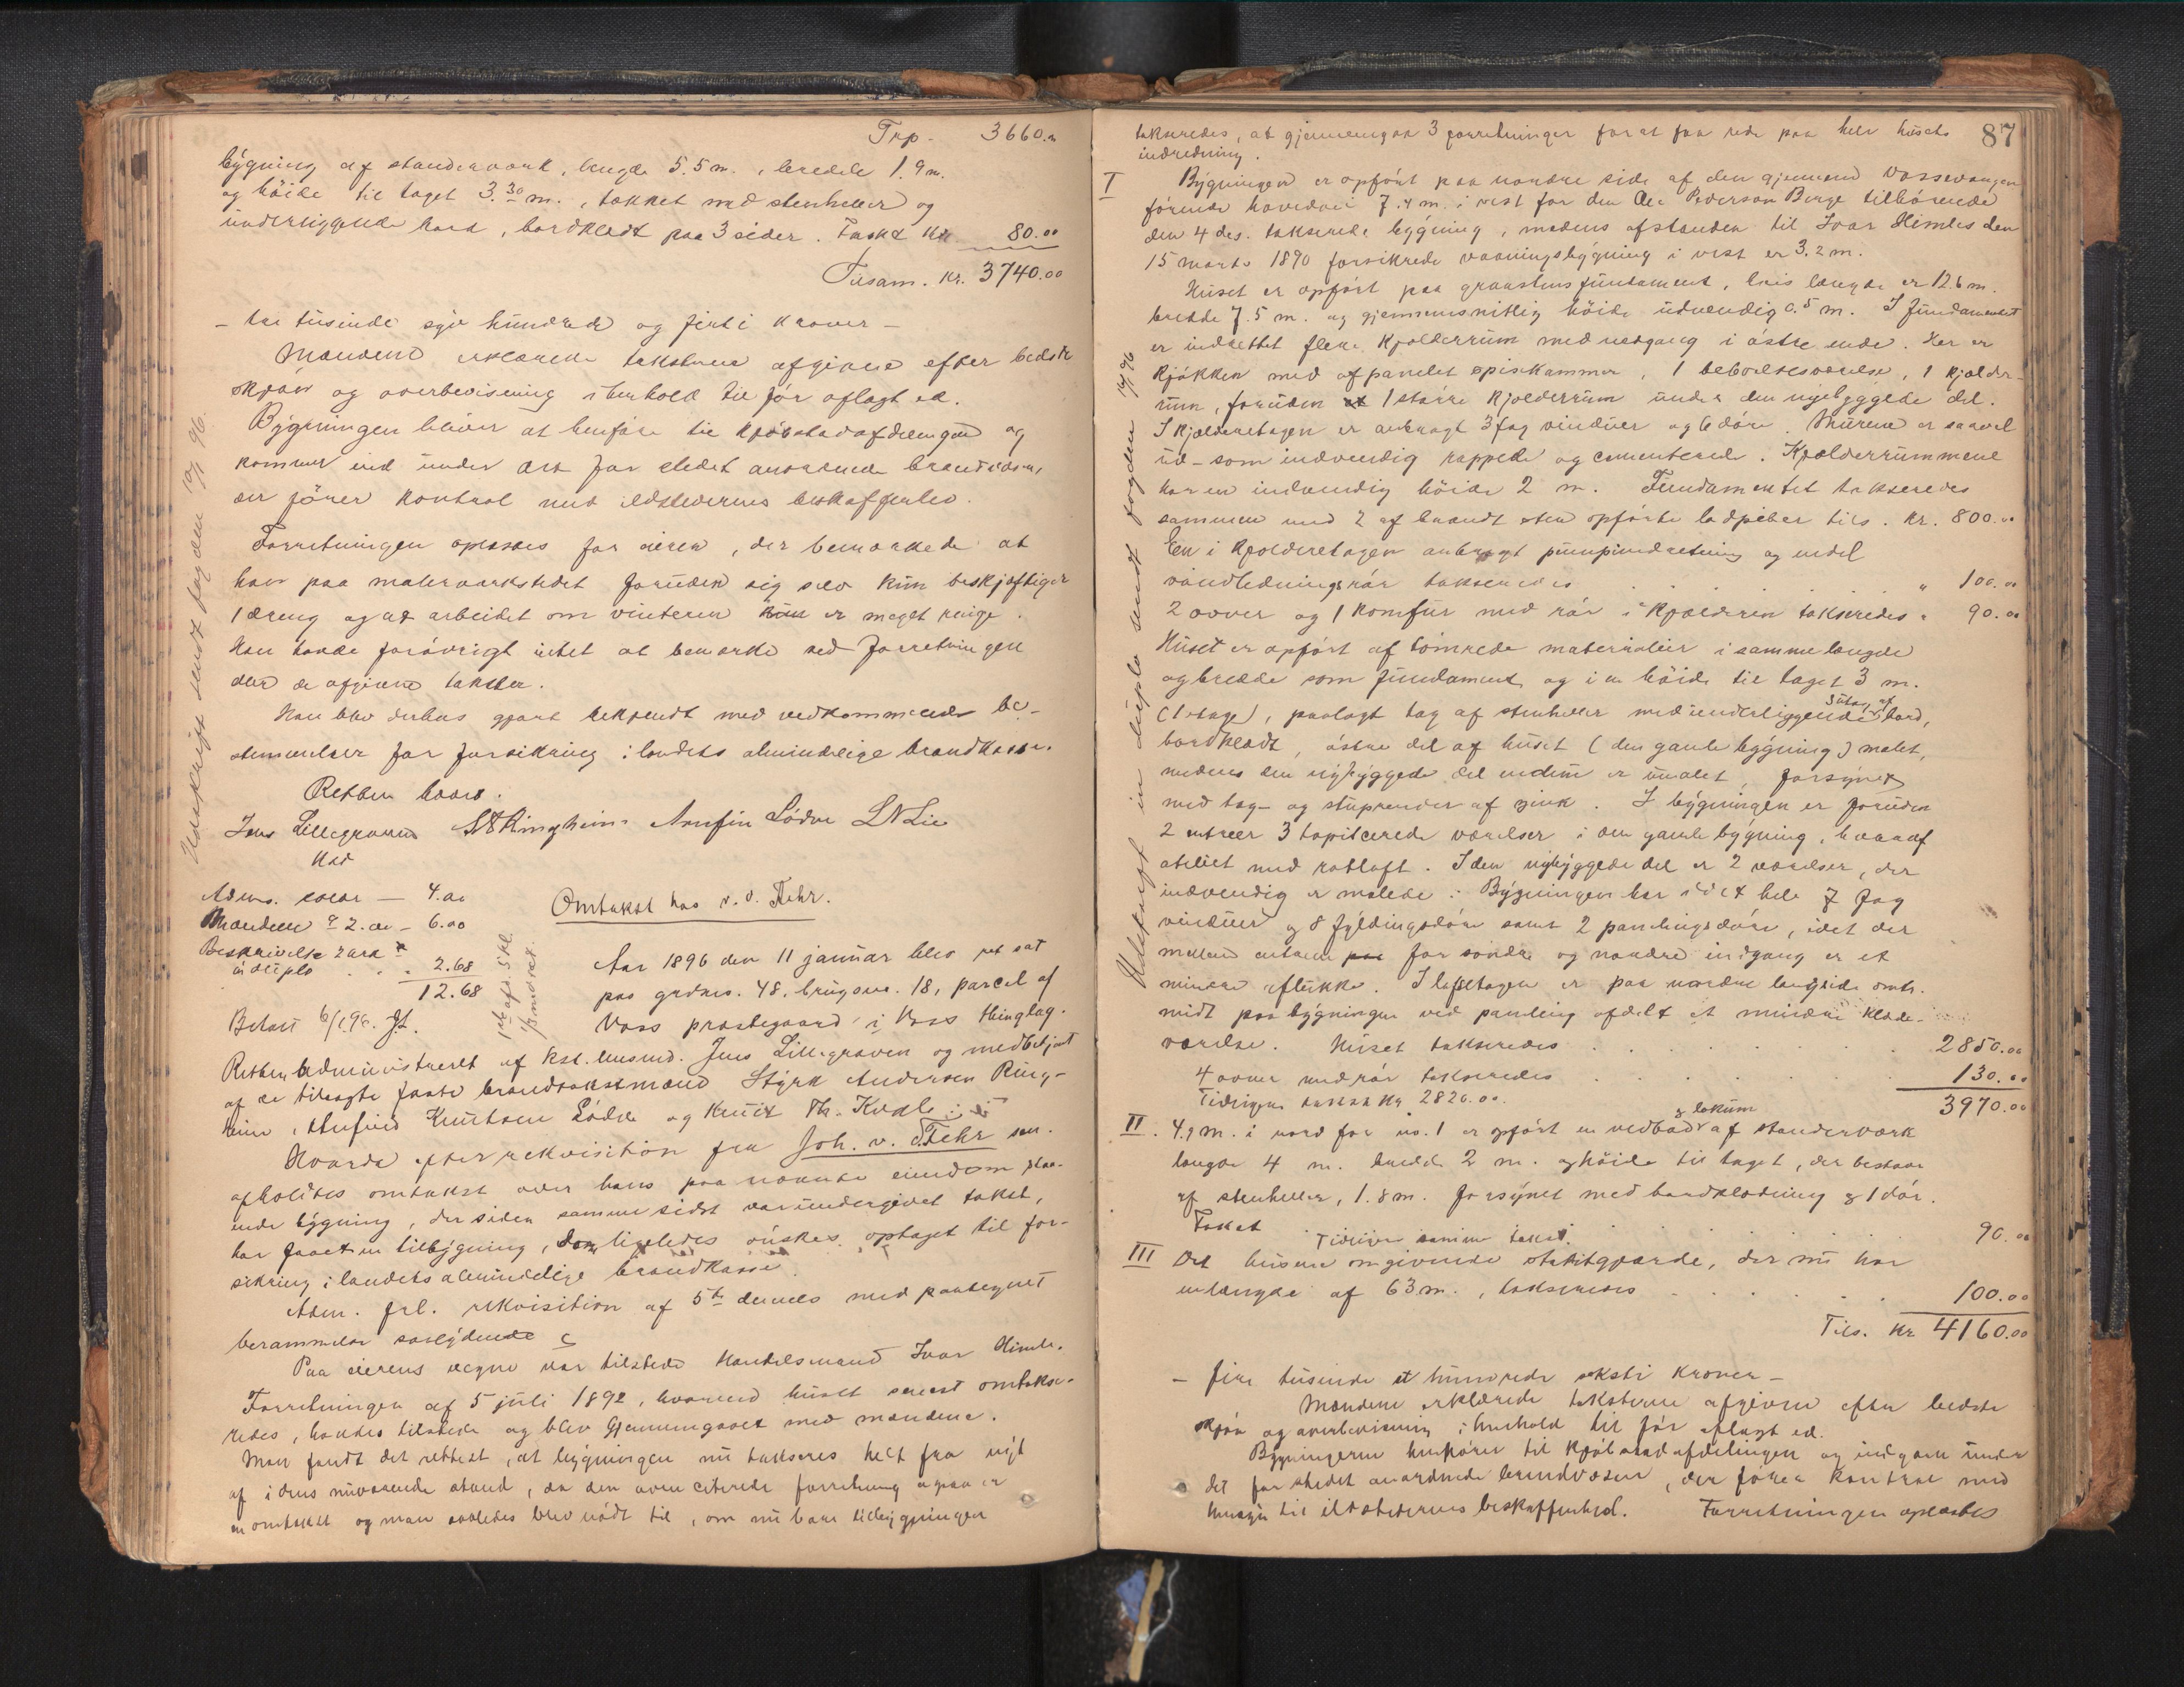 Trp. 3660.00
bygning af standerværk, længde 5.5 m., bredde 1.9 m.
og høide til taget 3.30 m., tækket med stenheller og
underliggende bord, bordklædt paa 3 sider. Takst Kr. 80.00
Tilsam. Kr. 3740.00
- tre tusinde syv hundrede og firti kroner -
Mændene erklærede taksterne afgivne efter bedste
skjøn og overbevisning i henhold til før aflagt ed.
Bygningen bliver at henføre til kjøbstadafdelingen og
kommer ind under det for stedet anordnede brandvæsen,
der fører kontrol med ildstedernes beskaffenhed.
Forretningen oplæstes for eieren, der bemærkede at
han paa malerværkstedet foruden sig selv kun beskjæftiger
1 dreng og at arbeidet om vinteren er meget ringe.
Han havde forøvrigt intet at bemærke ved forretningen
eller de afgivne takster.
Han blev derhos gjort bekjendt med vedkommende be-
stemmelser for forsikring i landets almindelige brandkasse.
Retten hævet.
Jens Lillegraven S A Ringheim Arnfin Lødve L N Lie
Udskrift sendt fogden 10/1 96.
Adms. - 4.00
Mændene a 2.00 - 6.00
Beskrivelse 2 ark
in duplo 2.68
12.68
Betalt 6/1 96. JL.
Omtakst hos v. d. Fehr.
Aar 1896 den 11 januar blev ret sat
paa grdns. 48, brugsno. 18, parcel af
Voss præstegaard i Voss thinglag.
Retten administreret af kst. lensmd. Jens Lillegraven og medbetjent
af de tilsagte faste brandtakstmænd Styrk Andersen Ring-
heim, Arnfind Knutsen Lødve og Knut Th. Kvale.
Hvorda efter rekvisition fra Joh. v. d. Fehr sen.
afholdtes omtakst over hans paa nævnte eiendom staa-
ende bygning, der siden samme sidst var undergivet takst,
har faaet en tilbygning, der ligeledes ønskes optaget til for-
sikring i landets almindelige brandkasse.
Adm. frl. rekvisition af 5te dennes med paategnet
berammelse saalydende
Paa eierens vegne var tilstede Handelsmand Ivar Himle.
Forretningen af 5 juli 1892, hvorved huset senest omtakse-
redes, havdes tilstede og blev gjennemgaaet med mændene.
Man fandt det rettest, at bygningen nu takseres helt fra nyt
af i dens nuværende stand, da den oven citerede forretning ogsaa er
en omtakst og man saaledes blev nødt til, om nu bare tilbygningen
87
takseredes, at gjennemgaa 3 forretninger for at faa rede paa hele husets
indredning.
I Bygningen er opført paa nordre side af den gjennem Vossevangen
førende hovedvei 7.4 m. i vest for den Ole Pederson Berge tilhørende
den 4 des. takserede bygning, medens afstanden til Ivar Himles den
15 marts 1890 forsikrede vaaningsbygning i vest er 3.2 m.
Huset er opført paa graastensfundament, hvis længde er 12.6 m.
bredde 7.5 m. og gjennemsnitlig høide udvendig 0.5 m. I fundamentet
er indrettet flere kjælderrum med nedgang i østre ende. Her er
kjøkken med afpanelet spiskammer, 1 beboelsesværelse, 1 kjælder-
rum, foruden 1 større kjælderrum under den nybyggede del.
I kjælderetagen er anbragt 3 fag vinduer og 6 døre. Murene er saavel
ud- som indvendig rappede og cementerede. Kjælderrummene
har en indvendig høide 2 m. Fundamentet takseredes
sammen med 2 af brændt sten opførte ladpiber tils. Kr. 800.00
En i kjælderetagen anbragt pumpindretning og endel
vandledningsrør takseredes " 100.00
2 ovner og 1 komfur med rør i kjælderen takseredes " 90.00
Huset er opført af tømrede materialier i samme længde
og bredde som fundament, og i en høide til taget 3 m.
(1 etage), paalagt tag af stenheller med underliggende sutag af bord,
bordklædt, østre del af huset (den gamle bygning) malet,
medens den nybyggede del endnu er umalet, forsynet
med tag- og stuprender af zink. I bygningen er foruden
2 entreer 3 tapitserede værelser i den gamle bygning, hvoraf
atelieet med rotloft. I den nybyggede del er 2 værelser, der
indvendig er malede. Bygningen har i det hele 7 fag
vinduer og 8 fyldingsdøre samt 2 panelingsdøre, idet der
mellem entreen for søndre og nordre indgang er et
mindre aflukke. I loftetagen er paa nordre langside omtr.
midt paa bygningen ved paneling afdelt et mindre klæde-
værelse. Huset takseredes 2850.00
4 ovner med rør takseredes 130.00
Tidligere takst Kr. 2820.00. 3970.00
II. 4.9 m. i nord for no. 1 er opført en vedbod & lokum af standerværk
længde 4 m. bredde 2 m. og høide til taget, der bestaar
af stenheller, 1.8 m. forsynet med bordklædning & 1 dør.
Takst Tidligere samme takst. 90.00
III Det husene omgivende stakitgjærde, der nu har
en længde af 63 m., takseredes 100.00
Tils. Kr 4160.00
- fire tusinde et hundrede seksti kroner -
Mændene erklærede taksterne afgivne efter bedste
skjøn og overbevisning i henhold til før aflagt ed.
Bygningerne henhører til kjøbstadafdelingen og indgaar under
det for stedet anordnede brandvæsen, der fører kontrol med
hensyn til ildstedernes beskaffenhed. Forretningen oplæstes
Udskrift in duplo sendt fogden 14/1 96